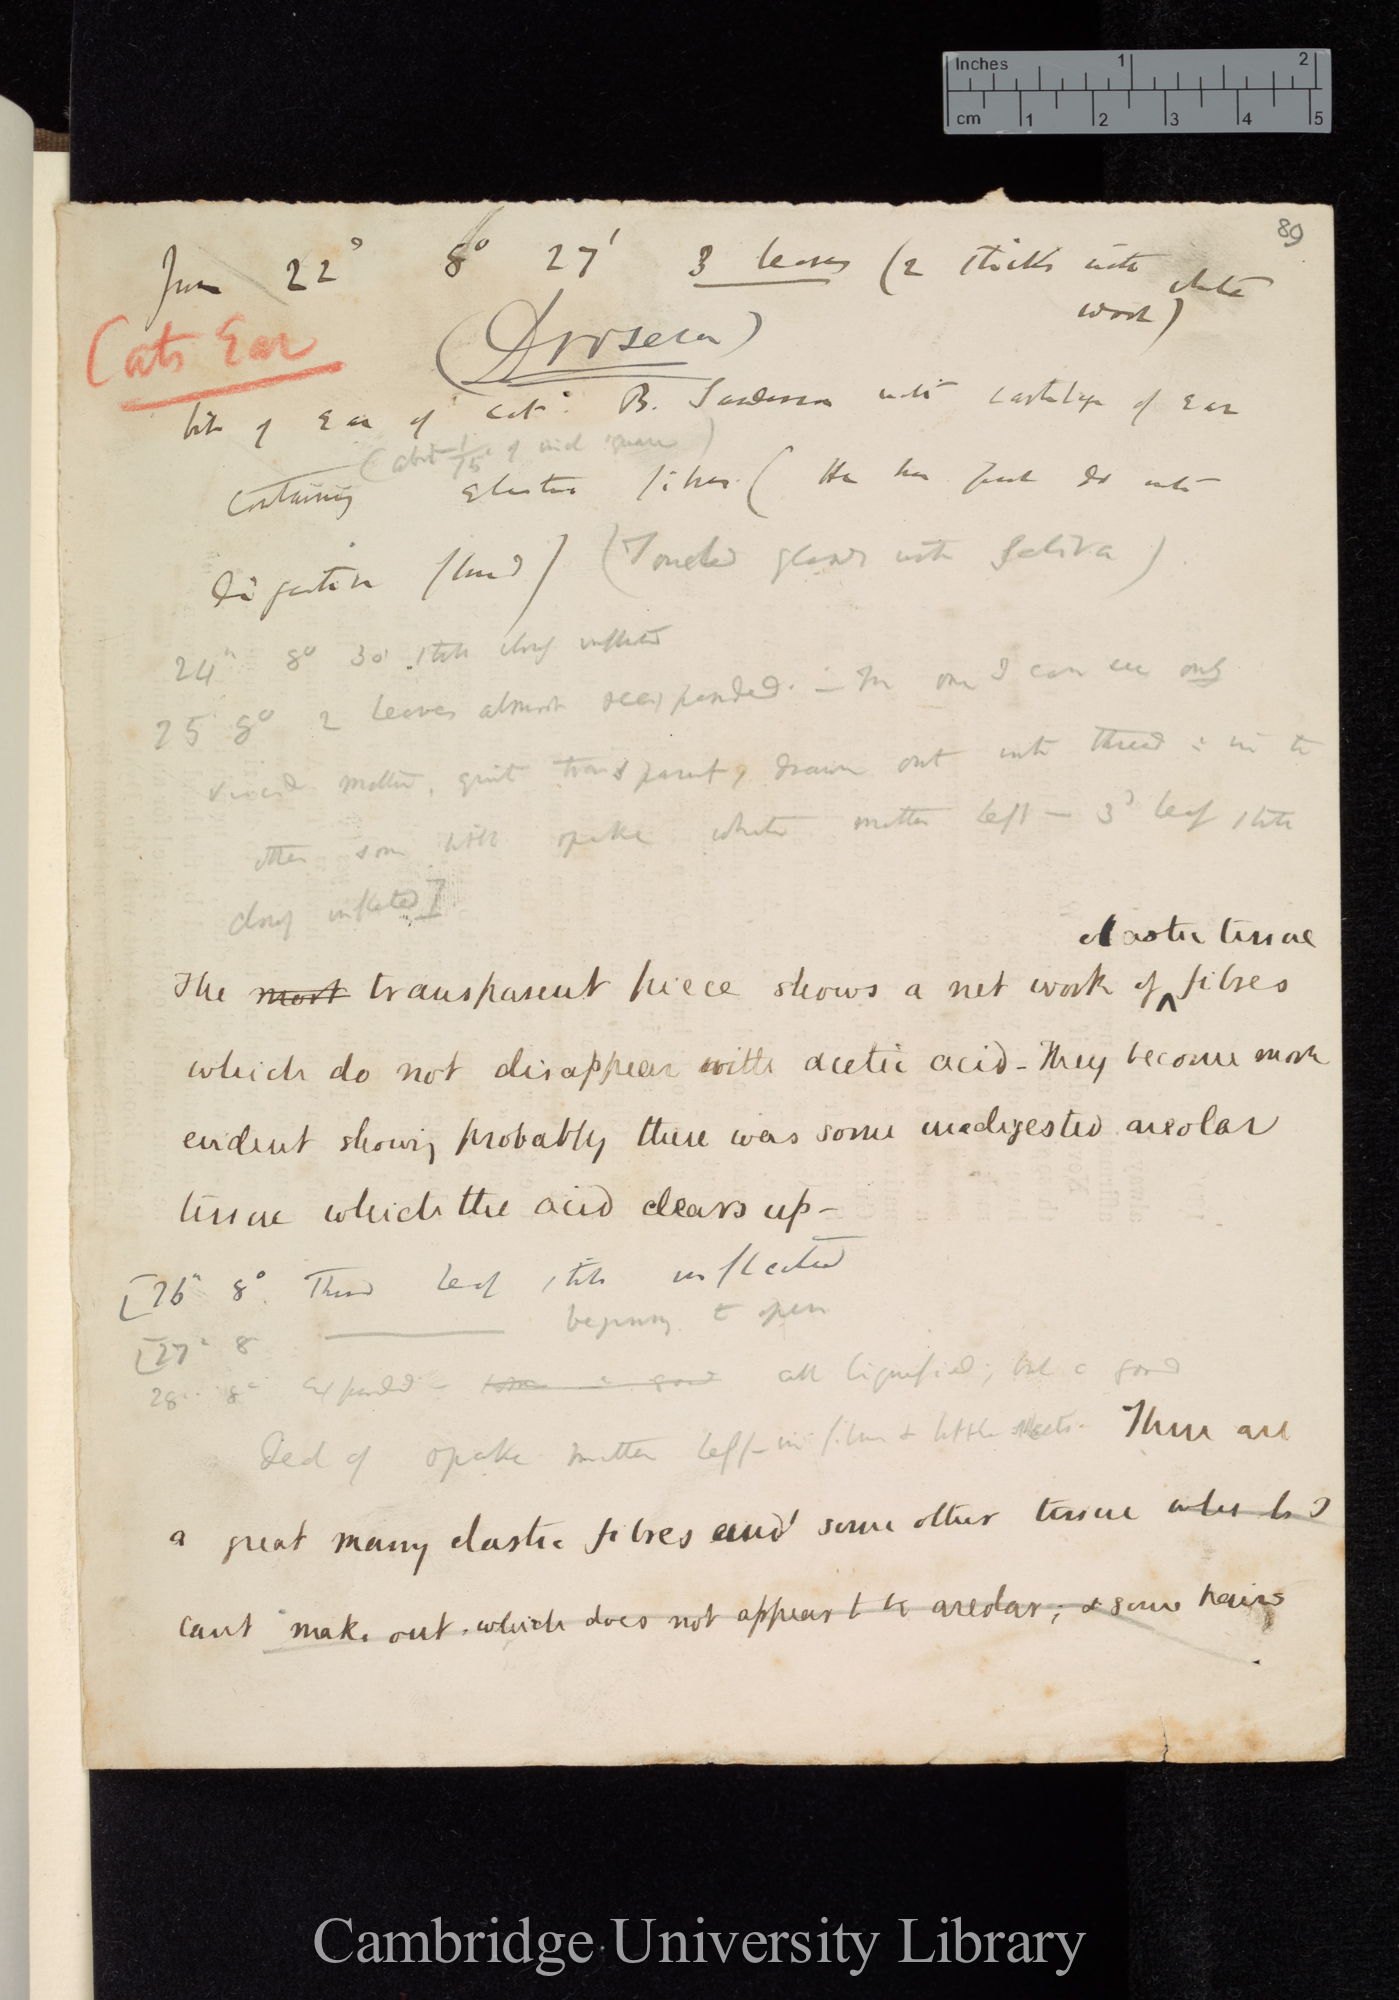 Inches 1 2
cm 1 2 3 4 5
89
June 22d 8° 27' 3 leaves (2 sticks with white
wool)
Cats Ear
(Drosera)
bits of Ear of Cat: B. Sanderson with cartilage of Ear
(about 1/15 of inch square)
containing elastic fibres. (He has just do with
digestive fluid) (Touched glands with Saliva)
24th 8° 30' still closely inflected
25 8° 2 leaves almost reexpanded. — In one I can see only
viscid matter, quite transparent, drawn out into thread : in the
other some little opake white matter left — 3d leaf still
closely inflected]
elastic tissue
The most transparent piece shows a net work of fibres
which do not disappear with acetic acid – They become more
evident showing probably there was some undigested areolar
tissue which the acid clears up –
[26th 8° Third leaf still inflected
[27th 8 beginning to open
28th 8° expanded – all liquified; but a good
deal of opake matter left – in films & little sheets. There are
a great many elastic fibres and some other tissue which I
cant make out. which does not appear to be areolar; & some hairs
Cambridge University Library